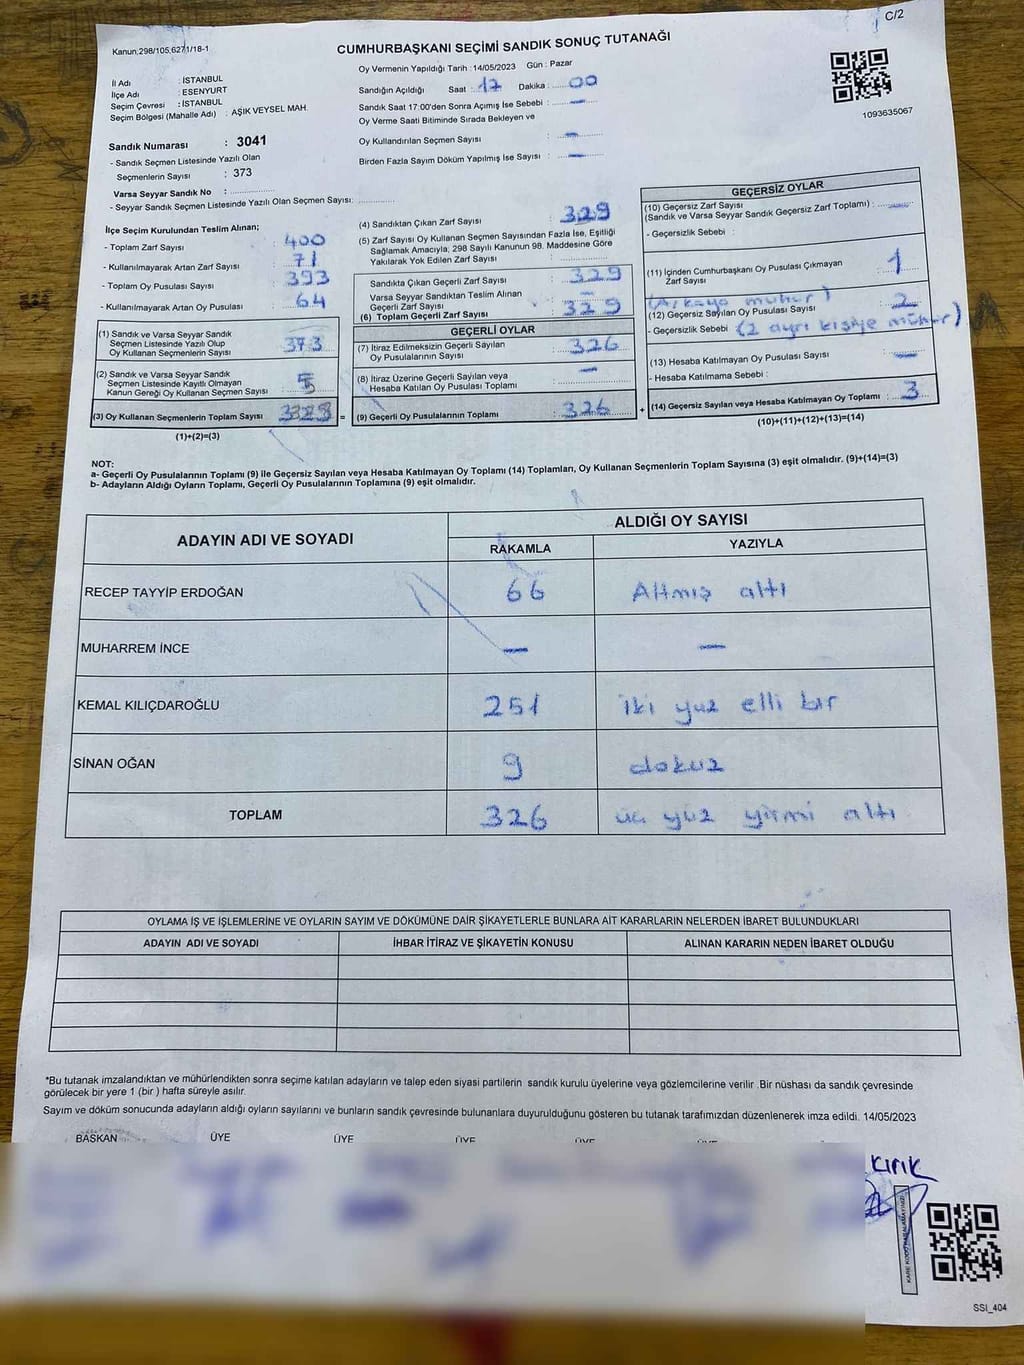 C/2
Kanun;298/105,6271/18-1
CUMHURBAŞKANI SEÇİMİ SANDIK SONUÇ TUTANAĞI
İl Adı : İSTANBUL
İlçe Adı : ESENYURT
Seçim Çevresi : İSTANBUL
Seçim Bölgesi (Mahalle Adı) : AŞIK VEYSEL MAH.
Oy Vermenin Yapıldığı Tarih : 14/05/2023 Gün : Pazar
Sandığın Açıldığı Saat : 17 Dakika : 00
Sandık Saat 17:00'den Sonra Açımış İse Sebebi : —
Oy Verme Saati Bitiminde Sırada Bekleyen ve
Oy Kullandırılan Seçmen Sayısı : —
Birden Fazla Sayım Döküm Yapılmış İse Sayısı : —
1093635067
Sandık Numarası : 3041
- Sandık Seçmen Listesinde Yazılı Olan
Seçmenlerin Sayısı : 373
Varsa Seyyar Sandık No :
- Seyyar Sandık Seçmen Listesinde Yazılı Olan Seçmen Sayısı:
İlçe Seçim Kurulundan Teslim Alınan;
- Toplam Zarf Sayısı : 400
- Kullanılmayarak Artan Zarf Sayısı : 71
- Toplam Oy Pusulası Sayısı : 393
- Kullanılmayarak Artan Oy Pusulası : 64
(1) Sandık ve Varsa Seyyar Sandık
Seçmen Listesinde Yazılı Olup
Oy Kullanan Seçmenlerin Sayısı : 373
(2) Sandık ve Varsa Seyyar Sandık
Seçmen Listesinde Kayıtlı Olmayan
Kanun Gereği Oy Kullanan Seçmen Sayısı : 5
(3) Oy Kullanan Seçmenlerin Toplam Sayısı =
(1)+(2)=(3)
(4) Sandıktan Çıkan Zarf Sayısı : 329
(5) Zarf Sayısı Oy Kullanan Seçmen Sayısından Fazla İse, Eşitliği
Sağlamak Amacıyla; 298 Sayılı Kanunun 98. Maddesine Göre
Yakılarak Yok Edilen Zarf Sayısı :
Sandıkta Çıkan Geçerli Zarf Sayısı : 329
Varsa Seyyar Sandıktan Teslim Alınan
Geçerli Zarf Sayısı : —
(6) Toplam Geçerli Zarf Sayısı : 329
GEÇERLİ OYLAR
(7) İtiraz Edilmeksizin Geçerli Sayılan
Oy Pusulalarının Sayısı : 326
(8) İtiraz Üzerine Geçerli Sayılan veya
Hesaba Katılan Oy Pusulası Toplamı : —
(9) Geçerli Oy Pusulalarının Toplamı : 326 +
GEÇERSİZ OYLAR
(10) Geçersiz Zarf Sayısı
(Sandık ve Varsa Seyyar Sandık Geçersiz Zarf Toplamı) : —
- Geçersizlik Sebebi :
(11) İçinden Cumhurbaşkanı Oy Pusulası Çıkmayan
Zarf Sayısı : 1
(Arkaya mühür)
(12) Geçersiz Sayılan Oy Pusulası Sayısı : 2
- Geçersizlik Sebebi (2 ayrı kişiye mühür)
(13) Hesaba Katılmayan Oy Pusulası Sayısı : —
- Hesaba Katılmama Sebebi :
(14) Geçersiz Sayılan veya Hesaba Katılmayan Oy Toplamı : 3
(10)+(11)+(12)+(13)=(14)
NOT:
a- Geçerli Oy Pusulalarının Toplamı (9) ile Geçersiz Sayılan veya Hesaba Katılmayan Oy Toplamı (14) Toplamları, Oy Kullanan Seçmenlerin Toplam Sayısına (3) eşit olmalıdır. (9)+(14)=(3)
b- Adayların Aldığı Oyların Toplamı, Geçerli Oy Pusulalarının Toplamına (9) eşit olmalıdır.
ADAYIN ADI VE SOYADI
ALDIĞI OY SAYISI
RAKAMLA YAZIYLA
RECEP TAYYİP ERDOĞAN 66 Altmış altı
MUHARREM İNCE — —
KEMAL KILIÇDAROĞLU 251 iki yüz elli bir
SİNAN OĞAN 9 dokuz
TOPLAM 326 üç yüz yirmi altı
OYLAMA İŞ VE İŞLEMLERİNE VE OYLARIN SAYIM VE DÖKÜMÜNE DAİR ŞİKAYETLERLE BUNLARA AİT KARARLARIN NELERDEN İBARET BULUNDUKLARI
ADAYIN ADI VE SOYADI İHBAR İTİRAZ VE ŞİKAYETİN KONUSU ALINAN KARARIN NEDEN İBARET OLDUĞU
*Bu tutanak imzalandıktan ve mühürlendikten sonra seçime katılan adayların ve talep eden siyasi partilerin sandık kurulu üyelerine veya gözlemcilerine verilir .Bir nüshası da sandık çevresinde
görülecek bir yere 1 (bir ) hafta süreyle asılır.
Sayım ve döküm sonucunda adayların aldığı oyların sayılarını ve bunların sandık çevresinde bulunanlara duyurulduğunu gösteren bu tutanak tarafımızdan düzenlenerek imza edildi. 14/05/2023
BAŞKAN ÜYE ÜYE ÜYE ÜYE ÜYE
Kırık
SSI_404